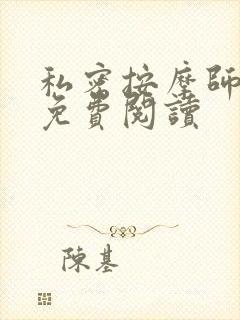 私密按摩師
免費閱讀
陳基